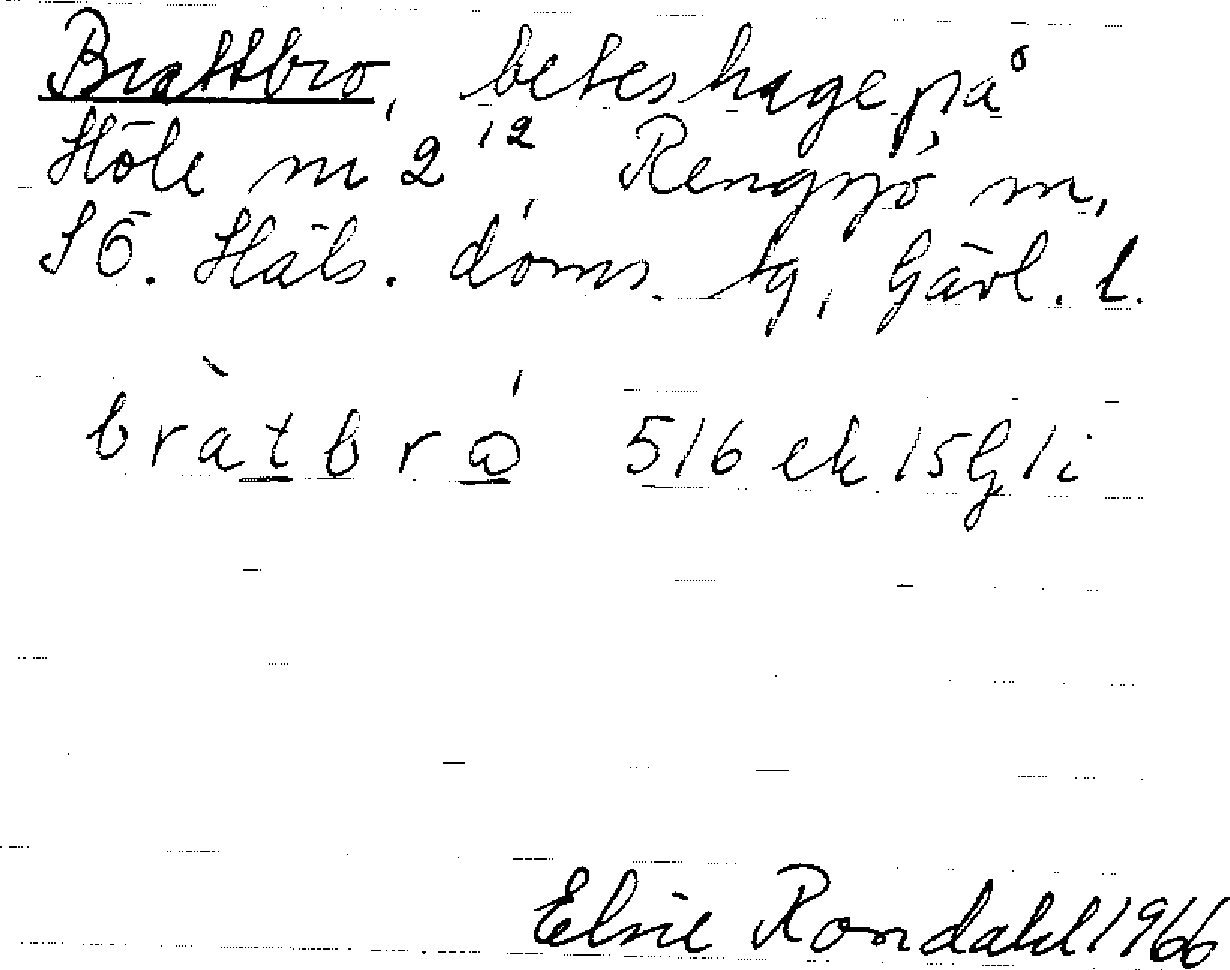 Brattbro, beteshage på
Höle nr 2¹², Rengsjö sn,
SÖ. Häls. doms. tg, Gävl. l.
bràtbrǻ 516 ek 15G 1i
Elsie Rondahl 1966